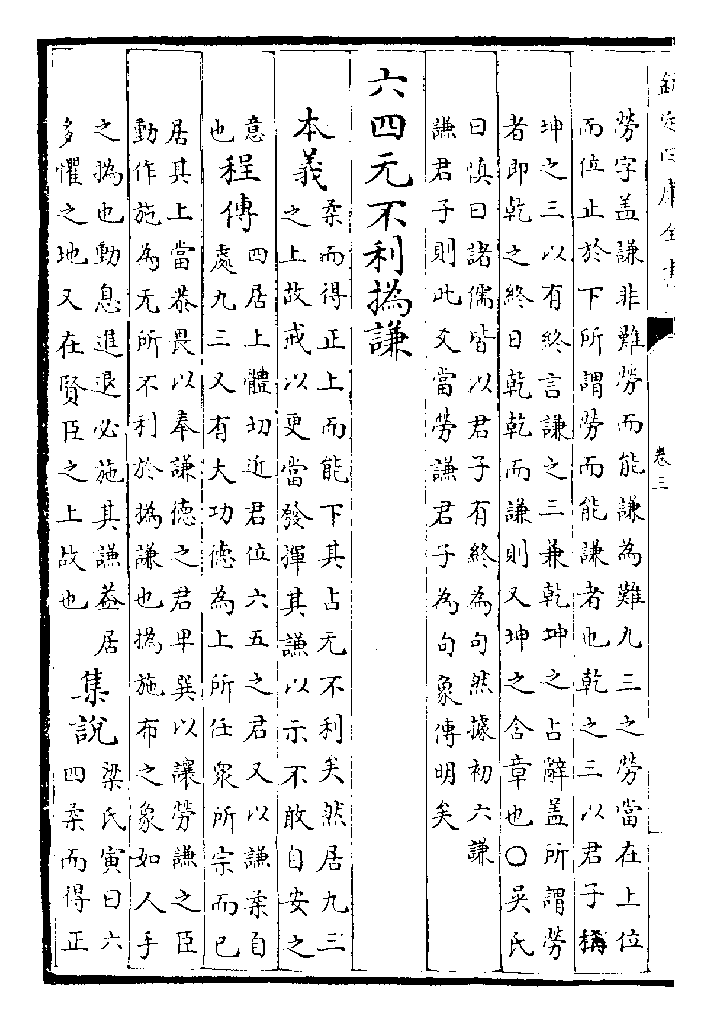 欽定四庫全書
卷三
勞字盖謙非難勞而能謙為難九三之勞當在上位
而位止於下所謂勞而能謙者也乾之三以君子稱
坤之三以有終言謙之三兼乾坤之占辭盖所謂勞
者即乾之終日乾乾而謙則又坤之含章也○吳氏
曰慎曰諸儒皆以君子有終為句然據初六謙
謙君子則此爻當勞謙君子為句象傳明矣
六四无不利撝謙
本義
柔而得正上而能下其占无不利矣然居九三
之上故戒以更當發揮其謙以示不敢自安之
意
也
程傳
四居上體切近君位六五之君又以謙柔自
處九三又有大功德為上所任衆所宗而已
居其上當恭畏以奉謙德之君卑巽以讓勞謙之臣
動作施為无所不利於撝謙也撝施布之象如人手
之撝也動息進退必施其謙葢居
多懼之地又在賢臣之上故也
集說
梁氏寅曰六
四柔而得正